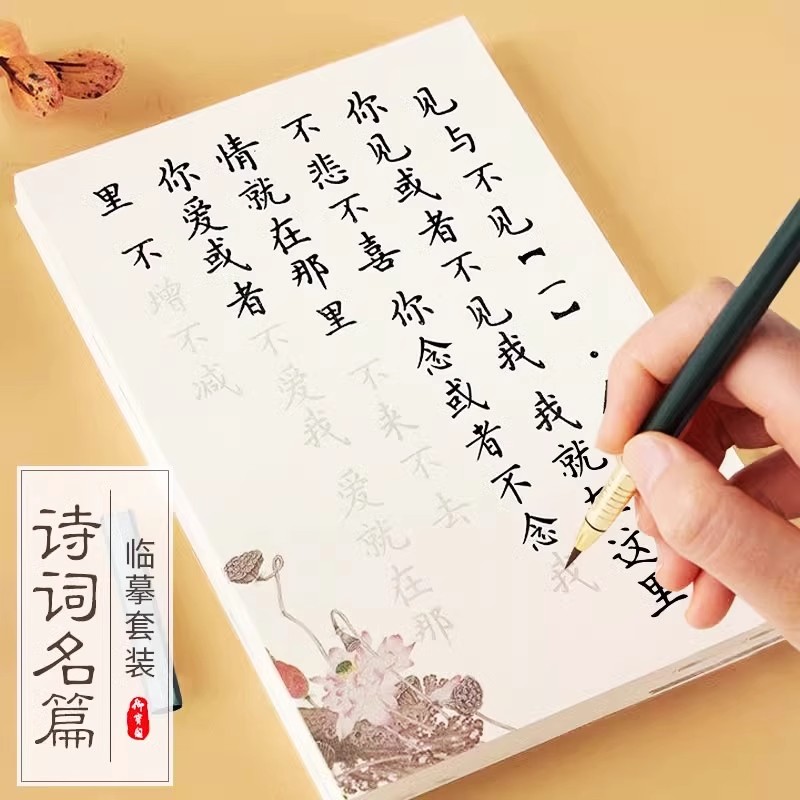 见与不见【一】·
你见或者不见我 我就在这里
不悲不喜 你念或者不念我
情就在那里 不来不去
你爱或者不爱我 爱就在那
里 不增不减
诗词名篇
临摹套装